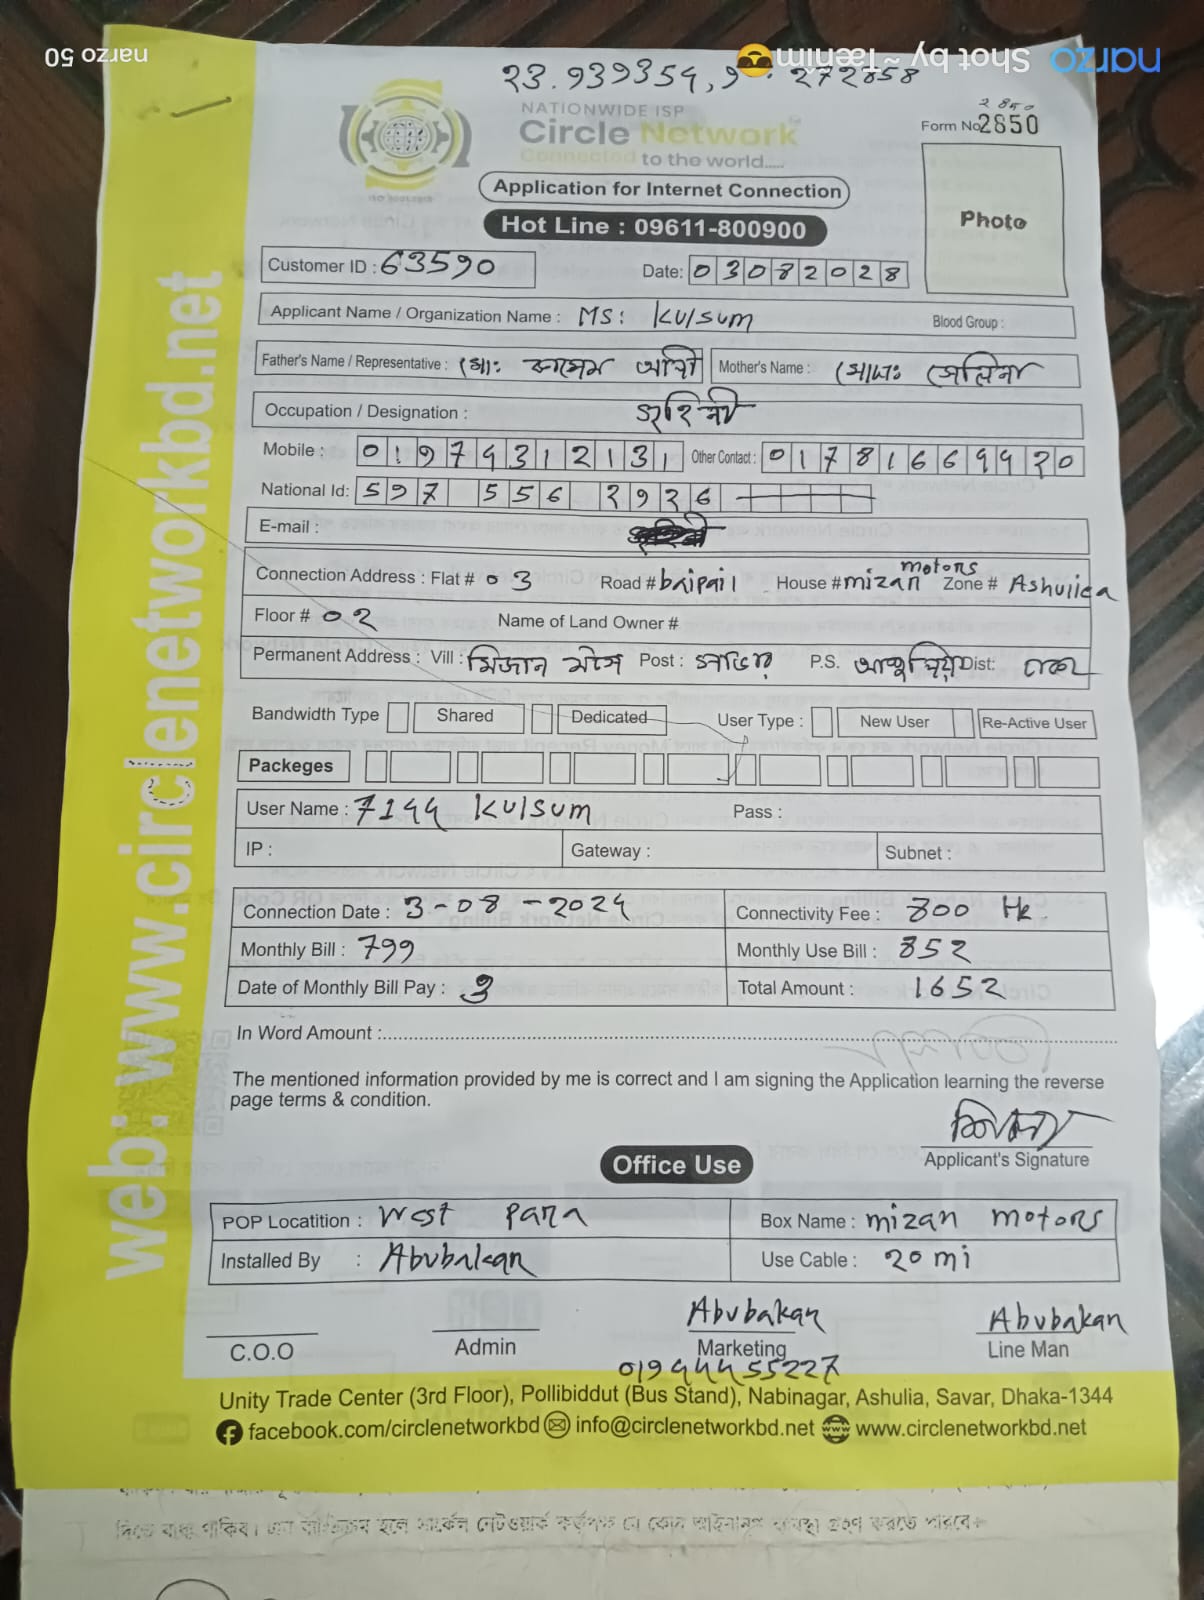 narzo 50
narzo Shot by ~Tænim😎
23.939354, 9 . 272858
NATIONWIDE ISP
Circle Network
Connected to the world.....
ISO 9001:2015
2850
Form No 2850
Application for Internet Connection
Photo
Hot Line : 09611-800900
Customer ID : 63590 Date: 03082028
Applicant Name / Organization Name : MS: Kulsum Blood Group :
Father's Name / Representative : মোঃ কাসেম আলী Mother's Name : মোসাঃ সেলিনা
Occupation / Designation : গৃহিনী
Mobile : 01979312131 Other Contact : 01781669920
National Id: 597 556 2926
E-mail :
Connection Address : Flat # 03 Road # baipail House # mizan motors Zone # Ashulia
Floor # 02 Name of Land Owner #
Permanent Address : Vill : মিজান মটর্স Post : সাভার P.S. আশুলিয়া Dist: ঢাকা
Bandwidth Type Shared Dedicated User Type : New User Re-Active User
Packeges
User Name : 7144 Kulsum Pass :
IP : Gateway : Subnet :
Connection Date : 3-08-2024 Connectivity Fee : 800 Hk.
Monthly Bill : 799 Monthly Use Bill : 852
Date of Monthly Bill Pay : 3 Total Amount : 1652
In Word Amount :
The mentioned information provided by me is correct and I am signing the Application learning the reverse
page terms & condition.
Applicant's Signature
Office Use
POP Locatition : West para Box Name : mizan motors
Installed By : Abubakar Use Cable : 20 mi
Abubakar Abubakar
C.O.O Admin Marketing Line Man
01944455227
Unity Trade Center (3rd Floor), Pollibiddut (Bus Stand), Nabinagar, Ashulia, Savar, Dhaka-1344
facebook.com/circlenetworkbd info@circlenetworkbd.net www.circlenetworkbd.net
web: www.circlenetworkbd.net
হলে সার্কেল নেটওয়ার্ক কর্তৃপক্ষ যে কোন আইনানুগ ব্যবস্থা গ্রহণ করতে পারবে।